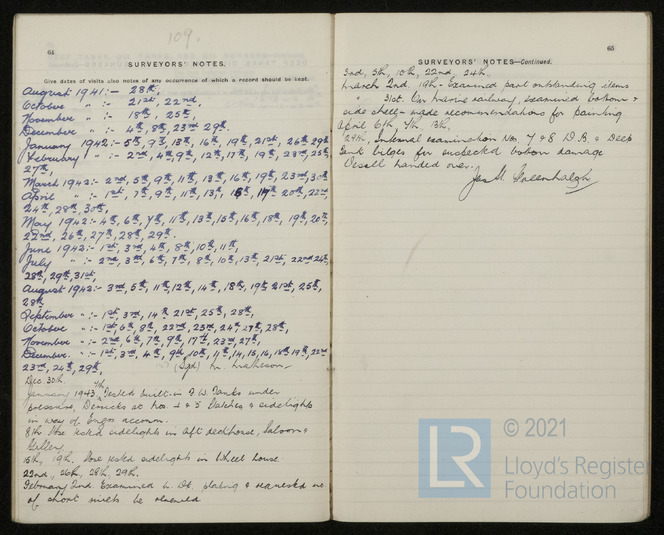 109.
64
SURVEYORS' NOTES.
Give dates of visits also notes of any occurrence of which a record should be kept.
August 1941:- 28th,
October " :- 21st, 22nd,
November " :- 18th, 25th,
December " :- 4th, 8th, 23rd 29th.
January 1942:- 5th, 9th, 13th, 16th, 19th, 21st, 26th 29th
February " :- 2nd, 4th 9th, 12th, 17th, 19th, 23rd, 25th,
27th,
March 1942:- 2nd, 5th, 9th, 11th, 13th, 16th, 19th, 23rd, 30th
April " :- 1st, 7th, 9th, 11th, 13th, 15th, 17th 20th, 22nd,
24th, 28th, 30th,
May 1942:- 4th, 6th, 7th, 11th, 13th, 15th, 16th, 18th, 19th, 20th,
22nd, 26th, 27th, 28th, 29th.
June 1942:- 1st, 3rd, 4th, 8th, 10th, 11th,
July " :- 2nd, 3rd, 6th, 7th, 8th, 10th, 13th, 21st, 22nd 24th,
28th, 29th, 31st,
August 1942:- 3rd, 5th, 11th, 12th, 14th, 18th, 19th 21st, 25th,
28th
September " :- 1st, 3rd, 14th 21st, 25th, 28th,
October " :- 1st, 6th, 8th, 22nd, 23rd, 24th 27th, 28th,
November " :- 2nd, 6th, 7th, 9th, 17th, 23rd, 27th,
December " :- 1st, 3rd, 4th, 9th, 10th, 11th, 14, 15, 16, 18th 19th, 22nd
23rd, 24th, 29th, (Sgd)
Dec 30th
January 1943 7th, Tested built-in F.W. Tanks under
pressure, Derricks at Nos. 4 & 5 Hatches & sidelights
in way of Engrs accomm.
8th Hose tested sidelights in aft deckhouse, Saloon &
Galley
15th, 19th. Hose tested sidelights in Wheel house
22nd, 26th, 28th, 29th,
February 2nd. Examined plating & requested no.
of short rivets be renewed.
65
SURVEYORS' NOTES—Continued.
3rd, 5th, 10th, 22nd, 24th,
March 2nd, 19th - Examined part outstanding items
" 31st. On marine railway, examined bottom &
side shell - made recommendations for painting
April 6th, 7th, 13th,
24th, Internal examination Nos 7 & 8 D.B. & Deep
tank bilges for suspected bottom damage
Vessel handed over.
Jas H. Greenhalgh
LR
© 2021
Lloyd's Register
Foundation